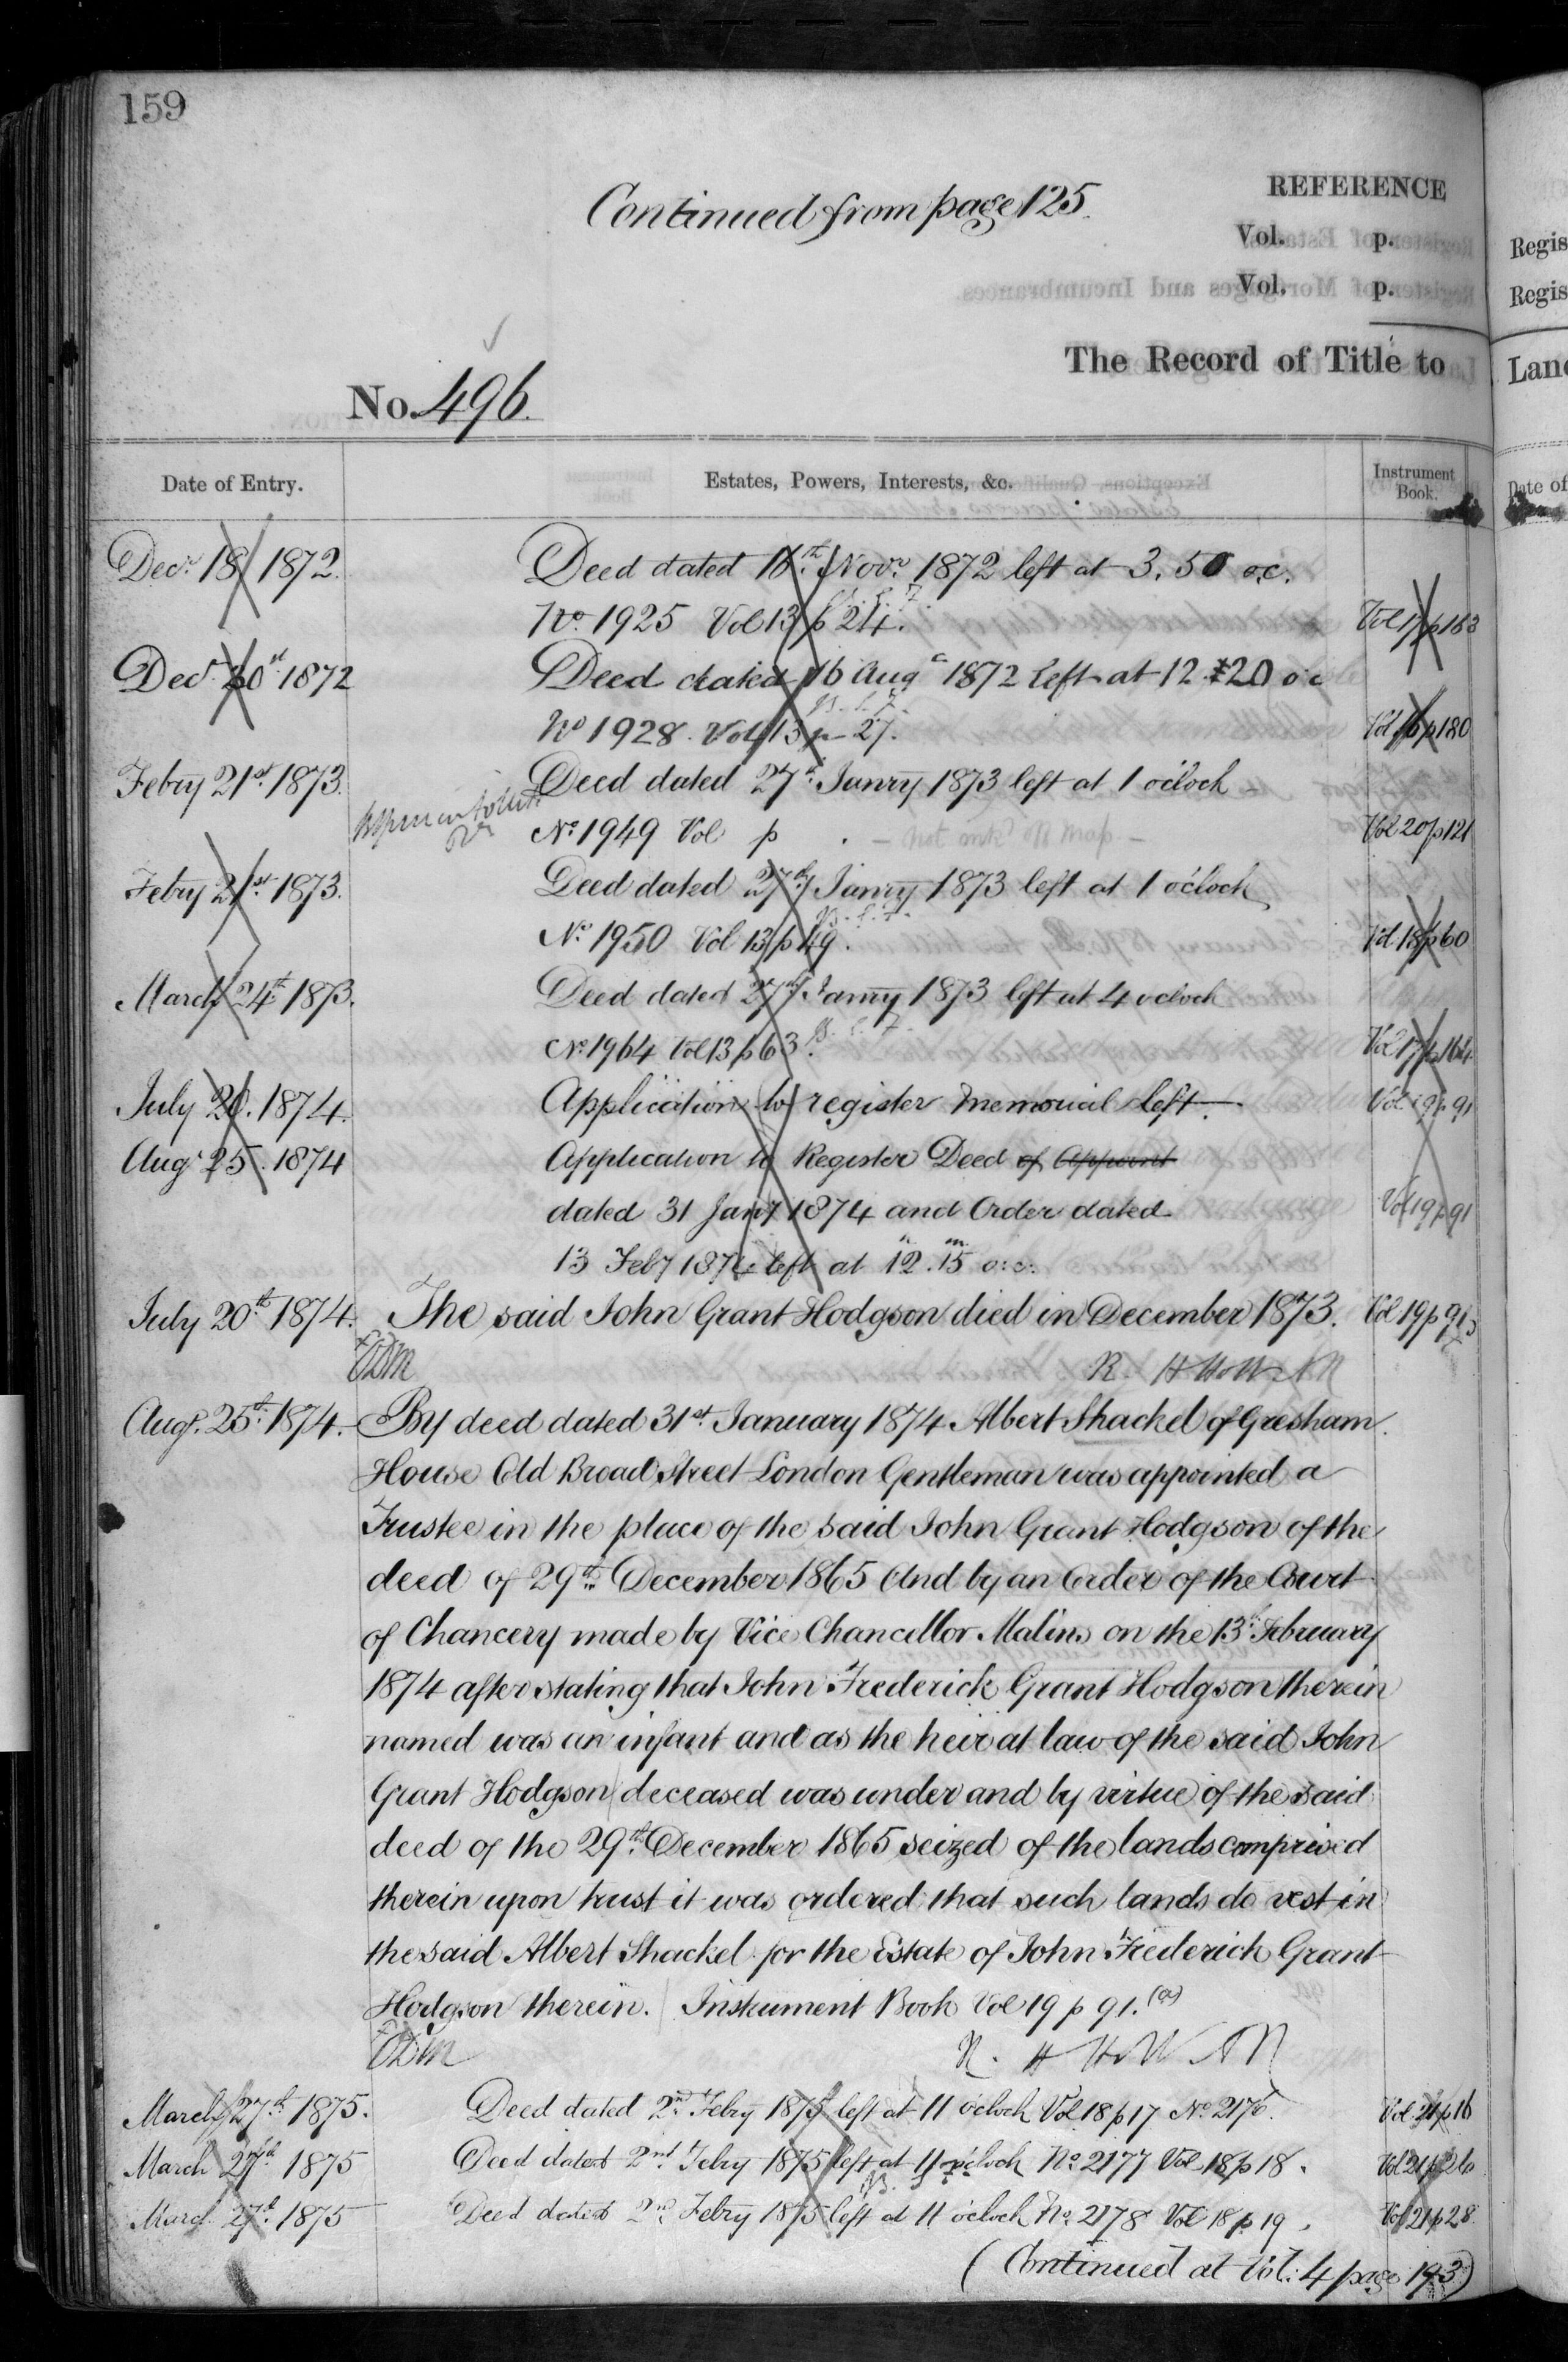 159
Continued from page 125.
REFERENCE
Vol. p.
Vol. p.
The Record of Title to
No. 496.
Date of Entry. Estates, Powers, Interests, &c. Instrument Book.
Decr 18 1872. Deed dated 16th Novr 1872 left at 3.50 o.c.
No 1925 Vol 13 p 24. Vol 17 p 183
Decr 20st 1872 Deed dated 16 Aug 1872 left at 12.20 o c
No 1928. Vol 13 p 27. Vol 16 p 180
Febry 21st 1873. Deed dated 27th Janry 1873 left at 1 o'clock
No 1949 Vol p . - not mkd off map - Vol 20 p 121
Febry 21st 1873. Deed dated 27th Janry 1873 left at 1 o'clock
No 1950 Vol 13 p 49. Vol 18 p 60
March 24th 1873. Deed dated 27th Janry 1873 left at 4 oclock
No 1964 Vol 13 p 63. Vol 17 p 164
July 20. 1874. Application to register Memorial left. Vol 19 p 91
Augt 25. 1874 Application to Register Deed of Appoint
dated 31 Jany 1874 and Order dated Vol 19 p 91
13 Feby 1874 left at 12h. 15m o.c.
July 20th 1874. The said John Grant Hodgson died in December 1873. Vol 19 p 91
Augt. 25th 1874. By deed dated 31st January 1874 Albert Shackel of Gresham
House Old Broad Street London Gentleman was appointed a
Trustee in the place of the said John Grant Hodgson of the
deed of 29th December 1865 And by an Order of the Court
of Chancery made by Vice Chancellor Malins on the 13th February
1874 after stating that John Frederick Grant Hodgson therein
named was an infant and as the heir at law of the said John
Grant Hodgson deceased was under and by virtue of the said
deed of the 29th December 1865 seized of the lands comprised
therein upon trust it was ordered that such lands do vest in
the said Albert Shackel for the Estate of John Frederick Grant
Hodgson therein. Instrument Book Vol 19 p 91. (a)
March 27th 1875. Deed dated 2nd Febry 1875 left at 11 o'clock Vol 18 p 17 No 2176. Vol 21 p 16
March 27th 1875 Deed dated 2nd Febry 1875 left at 11 o'clock No 2177 Vol 18 p 18. Vol 21 p 26
March 27th 1875 Deed dated 2nd Febry 1875 left at 11 o'clock No 2178 Vol 18 p 19. Vol 21 p 28
(Continued at Vol: 4 page 193)
Regis
Regis
Land
Date of